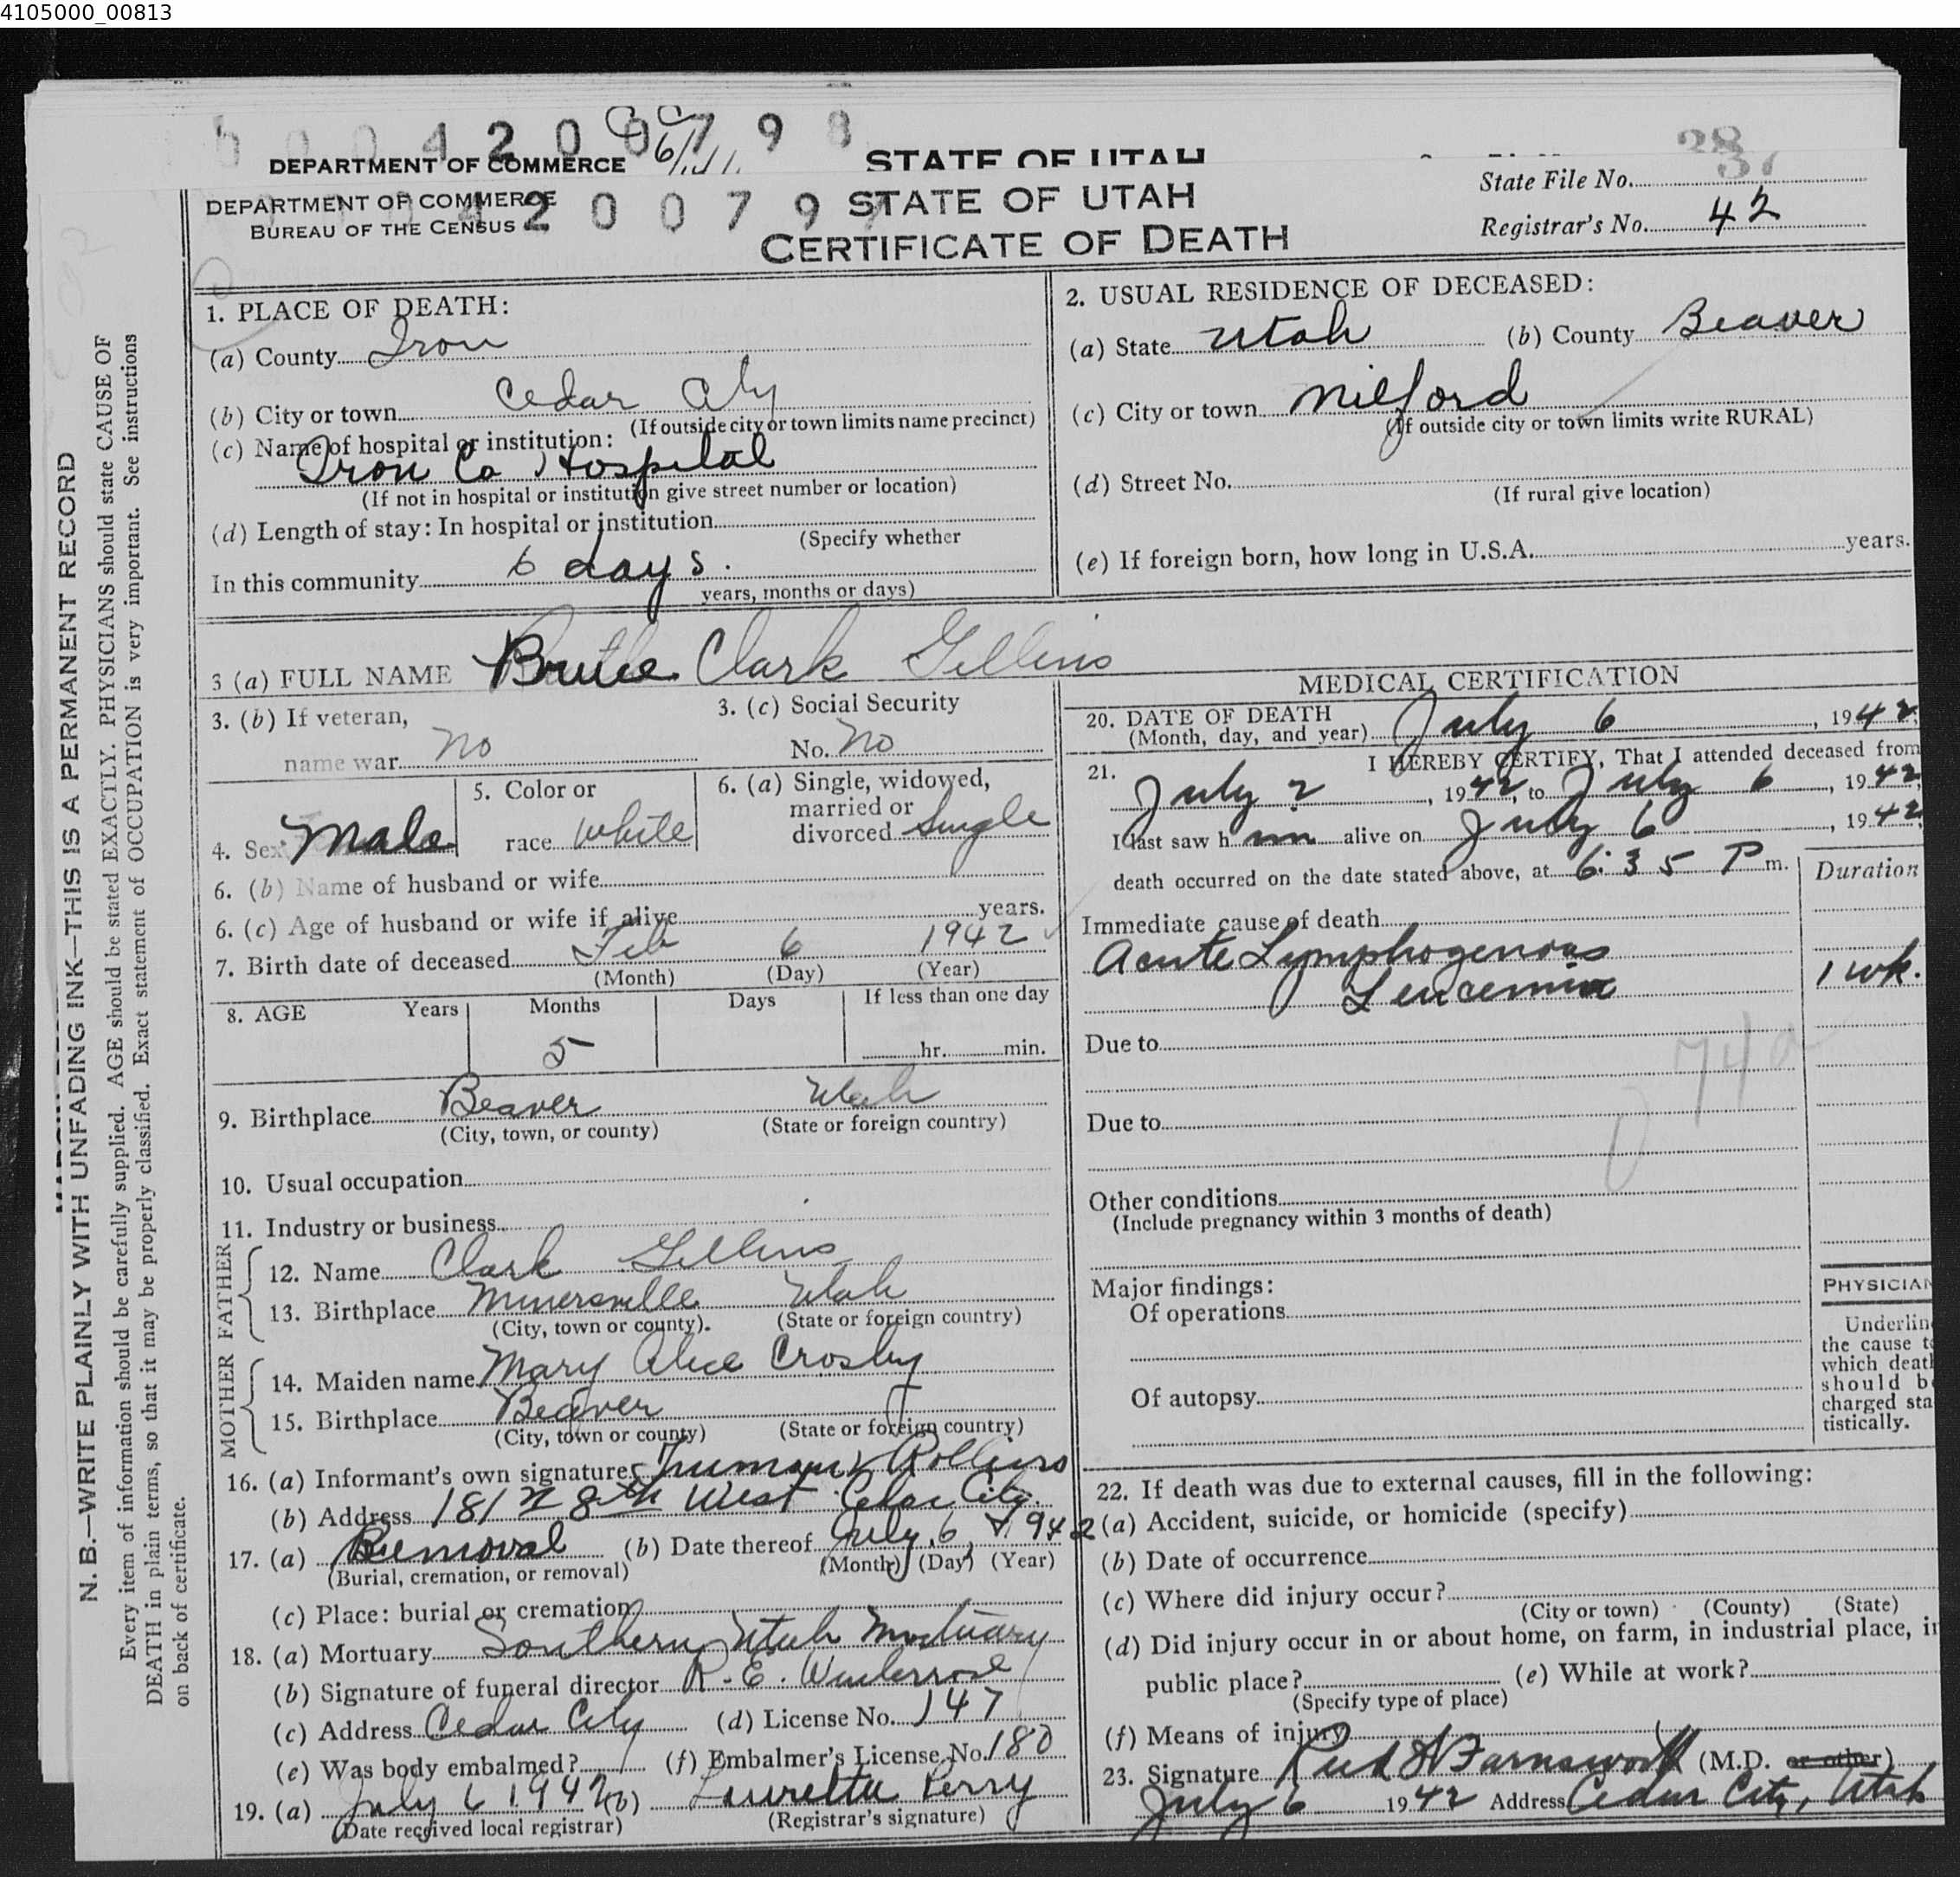 4105000_00813
0 0 0 4 2 0 0 7 9 8
DEPARTMENT OF COMMERCE STATE OF UTAH
DEPARTMENT OF COMMERCE
BUREAU OF THE CENSUS
4 2 0 0 7 9 7
STATE OF UTAH
CERTIFICATE OF DEATH
State File No. 37
Registrar's No. 42
N. B.—WRITE PLAINLY WITH UNFADING INK—THIS IS A PERMANENT RECORD
Every item of information should be carefully supplied. AGE should be stated EXACTLY. PHYSICIANS should state CAUSE OF
DEATH in plain terms, so that it may be properly classified. Exact statement of OCCUPATION is very important. See instructions
on back of certificate.
1. PLACE OF DEATH:
(a) County Iron
(b) City or town Cedar City
(If outside city or town limits name precinct)
(c) Name of hospital or institution:
Iron Co Hospital
(If not in hospital or institution give street number or location)
(d) Length of stay: In hospital or institution
(Specify whether
In this community 6 days.
years, months or days)
2. USUAL RESIDENCE OF DECEASED:
(a) State Utah (b) County Beaver
(c) City or town Milford
(If outside city or town limits write RURAL)
(d) Street No.
(If rural give location)
(e) If foreign born, how long in U.S.A. years.
3 (a) FULL NAME Bruce Clark Gillins
3. (b) If veteran,
name war No
3. (c) Social Security
No. No
4. Sex Male
5. Color or
race White
6. (a) Single, widowed,
married or
divorced Single
6. (b) Name of husband or wife
6. (c) Age of husband or wife if alive years.
7. Birth date of deceased Feb 6 1942
(Month) (Day) (Year)
8. AGE Years Months Days If less than one day
5 hr. min.
9. Birthplace Beaver Utah
(City, town, or county) (State or foreign country)
10. Usual occupation
11. Industry or business
FATHER
12. Name Clark Gillins
13. Birthplace Minersville Utah
(City, town or county). (State or foreign country)
MOTHER
14. Maiden name Mary Alice Crosby
15. Birthplace Beaver
(City, town or county) (State or foreign country)
16. (a) Informant's own signature Truman Rollins
(b) Address 181 N 8th West Cedar City.
17. (a) Removal (b) Date thereof July 6, 1942
(Burial, cremation, or removal) (Month) (Day) (Year)
(c) Place: burial or cremation
18. (a) Mortuary Southern Utah Mortuary
(b) Signature of funeral director R. E. Winterrose
(c) Address Cedar City (d) License No. 147
(e) Was body embalmed? (f) Embalmer's License No. 180
19. (a) July 6 1942 (b) Lauretta Perry
(Date received local registrar) (Registrar's signature)
MEDICAL CERTIFICATION
20. DATE OF DEATH
(Month, day, and year) July 6, 1942
21. I HEREBY CERTIFY, That I attended deceased from
July 2, 1942, to July 6, 1942,
I last saw him alive on July 6, 1942
death occurred on the date stated above, at 6:35 P m.
Duration
Immediate cause of death
Acute Lymphogenous
Leucemia
1 wk.
Due to
74a
Due to
Other conditions
(Include pregnancy within 3 months of death)
Major findings:
Of operations
Of autopsy
PHYSICIAN
Underlin
the cause t
which deat
should b
charged sta
tistically.
22. If death was due to external causes, fill in the following:
(a) Accident, suicide, or homicide (specify)
(b) Date of occurrence
(c) Where did injury occur?
(City or town) (County) (State)
(d) Did injury occur in or about home, on farm, in industrial place, in
public place? (e) While at work?
(Specify type of place)
(f) Means of injury
23. Signature Reed W Farnsworth (M.D. or other)
July 6 1942 Address Cedar City, Utah